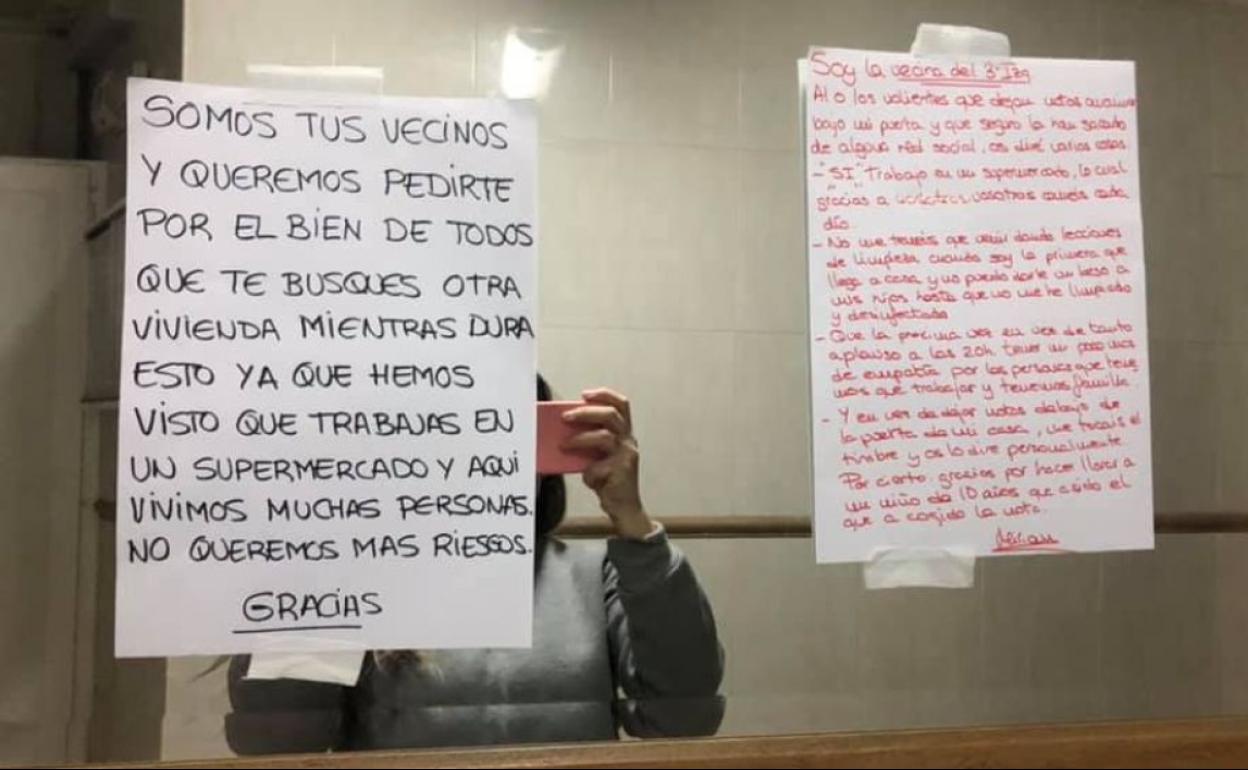 SOMOS TUS VECINOS
Y QUEREMOS PEDIRTE
POR EL BIEN DE TODOS
QUE TE BUSQUES OTRA
VIVIENDA MIENTRAS DURA
ESTO YA QUE HEMOS
VISTO QUE TRABAJAS EN
UN SUPERMERCADO Y AQUI
VIVIMOS MUCHAS PERSONAS.
NO QUEREMOS MAS RIESGOS.
GRACIAS
Soy la vecina del 3º Izq
Al o los valientes que dejan notas
bajo mi puerta y que seguro la han sacado
de alguna red social, os diré varias cosas
- "SI" Trabajo en un supermercado, lo cual
gracias a nosotros vosotros coméis cada
día.
- No me tenéis que venir dando lecciones
de limpieza cuando soy la primera que
llega a casa y no puedo darle un beso a
mis hijos hasta que no me he limpiado
y desinfectado
- Que la proxima vez en vez de tanto
aplauso a las 20h tener un poco mas
de empatía por las personas que tene
mos que trabajar y tenemos familia.
- Y en vez de dejar notas debajo de
la puerta de mi casa, me tocais el
timbre y os lo diré personalmente
Por cierto gracias por hacer llorar a
un niño de 10 años que a sido el
que a cogido la nota.
Miriam